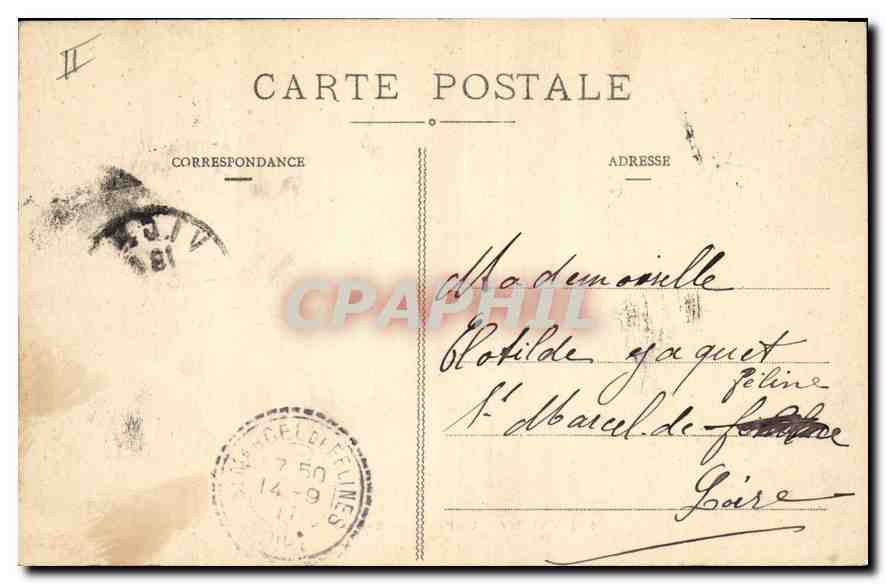 II
CARTE POSTALE
CORRESPONDANCE
ADRESSE
Mademoiselle
Clotilde Jaquet
féline
St Marcel. de
Loire
CPAPHIL
ST MARCEL DE FELINES
7 50
14 - 9
11